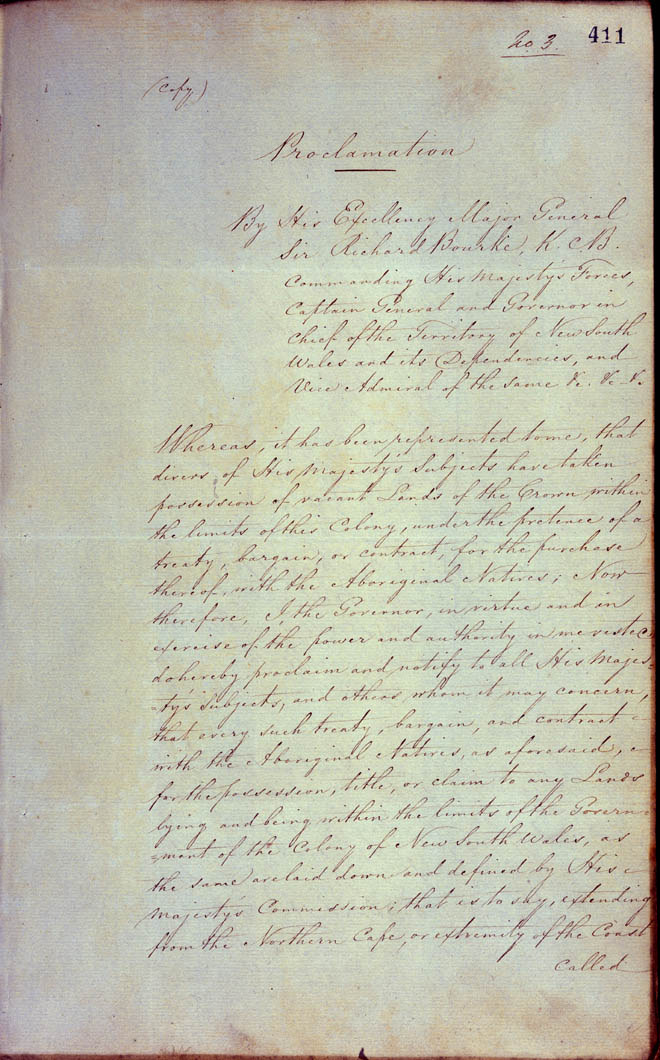 No. 3.
411
(Copy)
Proclamation
By His Excellency Major General
Sir Richard Bourke, K. CB.
Commanding His Majesty's Forces,
Captain General and Governor in
Chief of the Territory of New South
Wales and its Dependencies, and
Vice Admiral of the same &c. &c. &c.
Whereas, it has been represented to me, that
divers of His Majesty's Subjects have taken
possession of vacant Lands of the Crown within
the limits of this Colony, under the pretence of a
treaty, bargain, or contract, for the purchase
thereof, with the Aboriginal Natives; Now
therefore, I, the Governor, in virtue and in
exercise of the power and authority in me vested,
do hereby proclaim and notify to all His Majes=
=ty's Subjects, and others whom it may concern,
that every such treaty, bargain, and contract
with the Aboriginal Natives, as aforesaid,
for the possession, title, or claim to any Lands
lying and being within the limits of the Govern=
=ment of the Colony of New South Wales, as
the same are laid down and defined by His
Majesty's Commission; that is to say, extending
from the Northern Cape, or extremity of the Coast
called